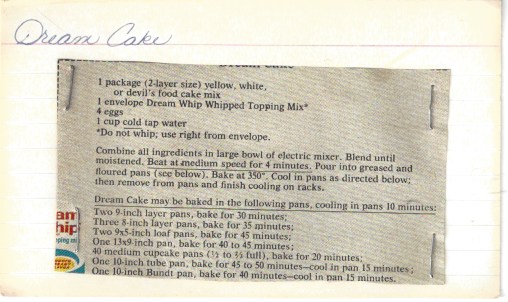 Dream Cake
Dream Cake
1 package (2-layer size) yellow, white,
or devil's food cake mix
1 envelope Dream Whip Whipped Topping Mix*
4 eggs
1 cup cold tap water
*Do not whip; use right from envelope.
Combine all ingredients in large bowl of electric mixer. Blend until
moistened. Beat at medium speed for 4 minutes. Pour into greased and
floured pans (see below). Bake at 350°. Cool in pans as directed below;
then remove from pans and finish cooling on racks.
Dream Cake may be baked in the following pans, cooling in pans 10 minutes:
Two 9-inch layer pans, bake for 30 minutes;
Three 8-inch layer pans, bake for 35 minutes;
Two 9x5-inch loaf pans, bake for 45 minutes;
One 13x9-inch pan, bake for 40 to 45 minutes;
40 medium cupcake pans (½ to ⅔ full), bake for 20 minutes;
One 10-inch tube pan, bake for 45 to 50 minutes—cool in pan 15 minutes;
One 10-inch Bundt pan, bake for 40 minutes—cool in pan 15 minutes.
am
hip